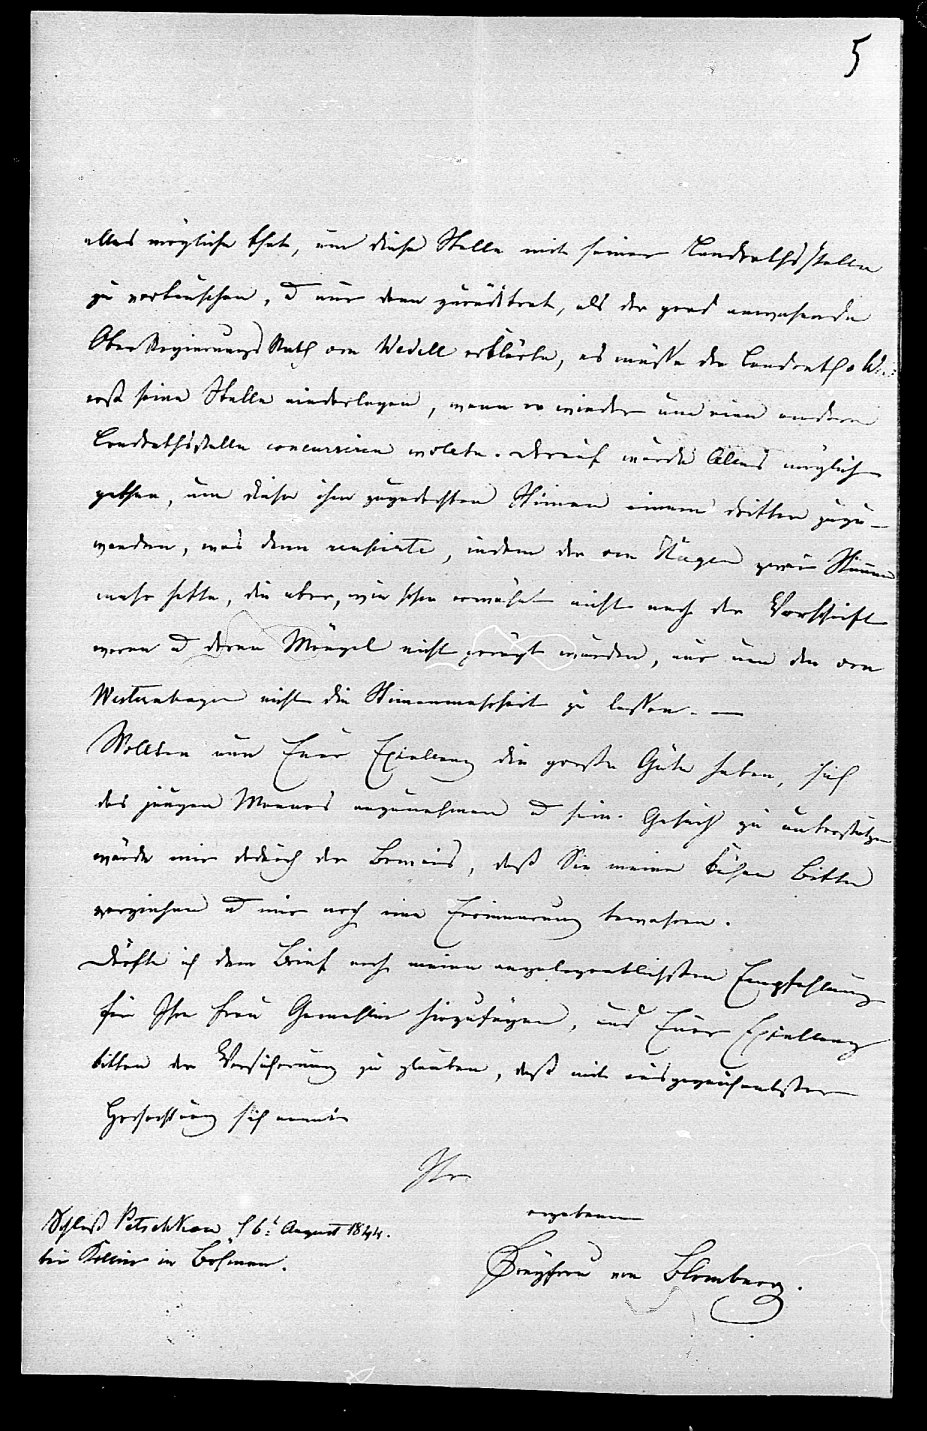 5
alles mögliche that, um diese Stelle mit seiner Landrathsstelle
zu vertauschen, & nur dann zurücktrat, als der grad anwesende
Ober Regierungs Rath von Wedell erklärte, es müsse der Landrath v W
erst seine Stelle niederlegen, wenn er wieder um eine andere
Landrathsstelle concurriren wollte. Darauf wurde Alles mögliche
gethan, um diese ihm zugedachten Stimmen einem dritten zuzu-
wenden, was denn reussirte, indem der von Hagen zwei Stimmen
mehr hatte, die aber, wie schon erwähnt nicht nach der Vorschrift
waren & deren Mängel nicht gerügt wurden, nur um den von
Westernhagen nicht die Stimmenmehrheit zu lassen. —
Wollten nun Euer Exzellenz die große Güte haben, sich
des jungen Mannes anzunehmen & sein Gesuch zu unterstützen
würde mir dadurch der Beweis, daß Sie meine kühne Bitte
verziehen & mir noch eine Erinnerung bewahren.
Dürfte ich dem Brief noch meine angelegentlichsten Empfehlung
für Ihre Frau Gemahlin hinzufügen, und Euer Exzellenz
bitten der Versicherung zu glauben, daß mit ausgezeichnetster
Hochachtung sich nennt
Ihre
ergebene
Schloß Petschkau d 6t August 1844.
bei Kollin in Böhmen.
Freyfrau von Blomberg.